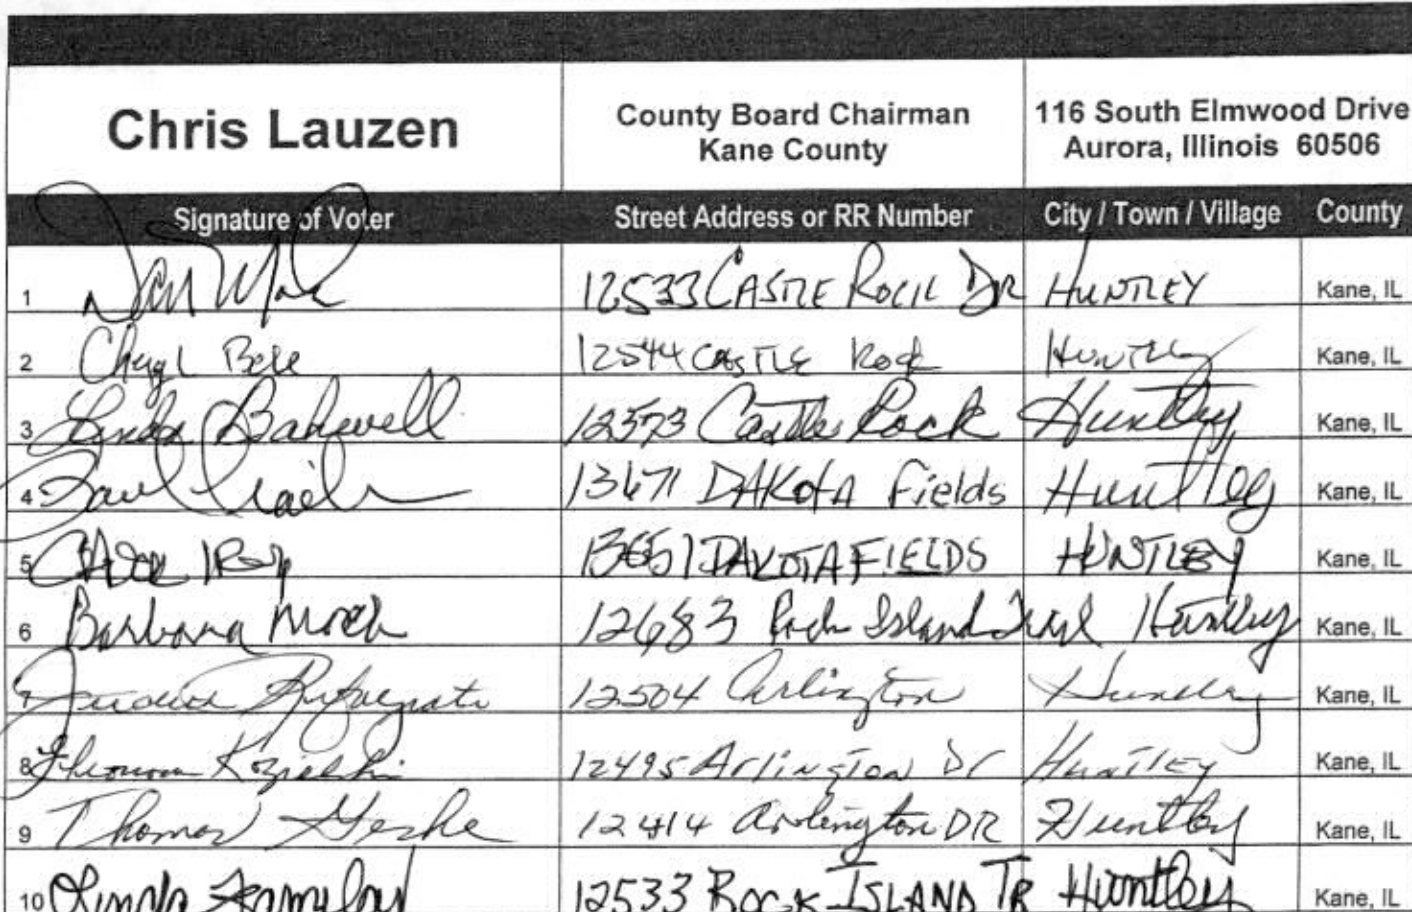 Chris Lauzen County Board Chairman 116 South Elmwood Drive
Kane County Aurora, Illinois 60506
Signature of Voter Street Address or RR Number City / Town / Village County
1 12533 CASTLE ROCK DR HUNTLEY Kane, IL
2 Cheryl 12544 CASTLE Rock Huntley Kane, IL
3 Linda Bakewell 12573 Castle Rock Huntley Kane, IL
4 13671 DAKOTA Fields Huntley Kane, IL
5 13651 DAKOTA FIELDS HUNTLEY Kane, IL
6 Barbara 12683 Rock Island Trail Huntley Kane, IL
12504 Arlington Huntley Kane, IL
8 12495 Arlington Dr Huntley Kane, IL
9 Thomas 12414 Arlington DR Huntley Kane, IL
10 Linda 12533 ROCK ISLAND TR Huntley Kane, IL